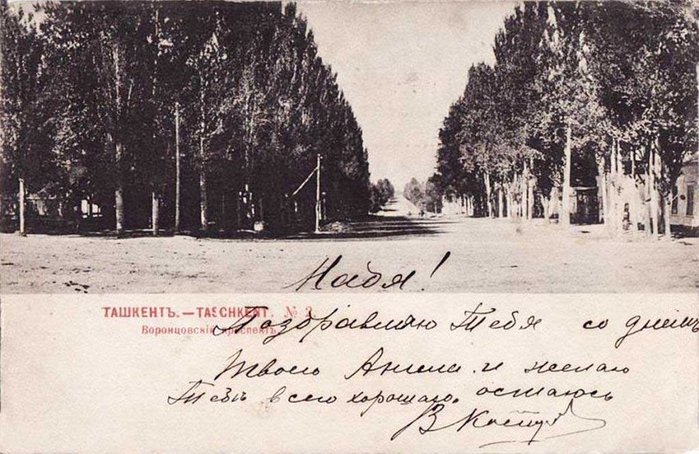 Надя!
ТАШКЕНТЪ.—TASCHKENT. № 2.
Воронцовскій проспектъ.
Поздравляю Тебя со днемъ
Твоего Ангела и желаю
Тебѣ всего хорошаго. остаюсь
В